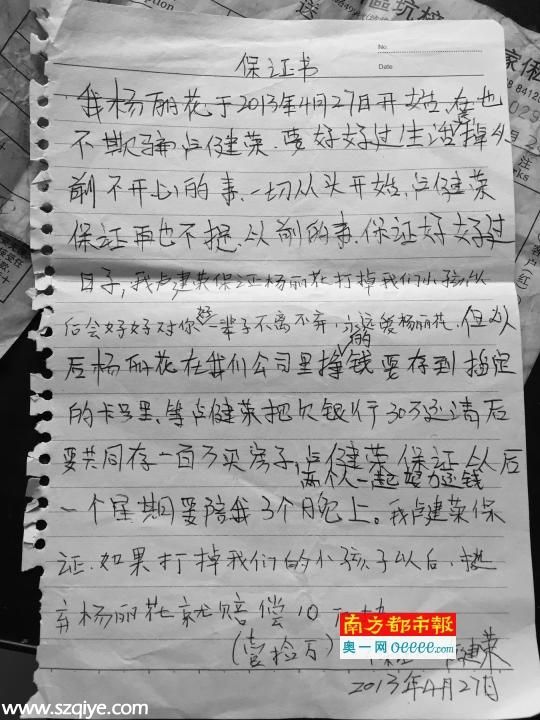 No.
Date
保证书
我杨丽花于2013年4月27日开始,在也
不欺骗卢健荣.要好好过生活.忘掉以
前不开心的事.一切从头开始,卢健荣
保证再也不提,以前的事.保证好好过
日子,我卢建荣保证杨丽花打掉我们小孩以
后会好好对你好一辈子不离不弃,永远爱杨丽花.但从
后杨丽花在我们公司里挣的钱要存到指定
的卡号里.等卢健荣把欠银行30万还清后
要共同存一百万买房子,卢健荣保证从后
两个人一起努力还钱
一个星期要陪我3个月晚上。我卢建荣保
证.如果打掉我们的小孩子以后.抛
弃杨丽花就赔偿10万
(壹拾万)
南方都市報
奥一网 oeeee.com
健荣
2013年4月27日
www.szqiye.com